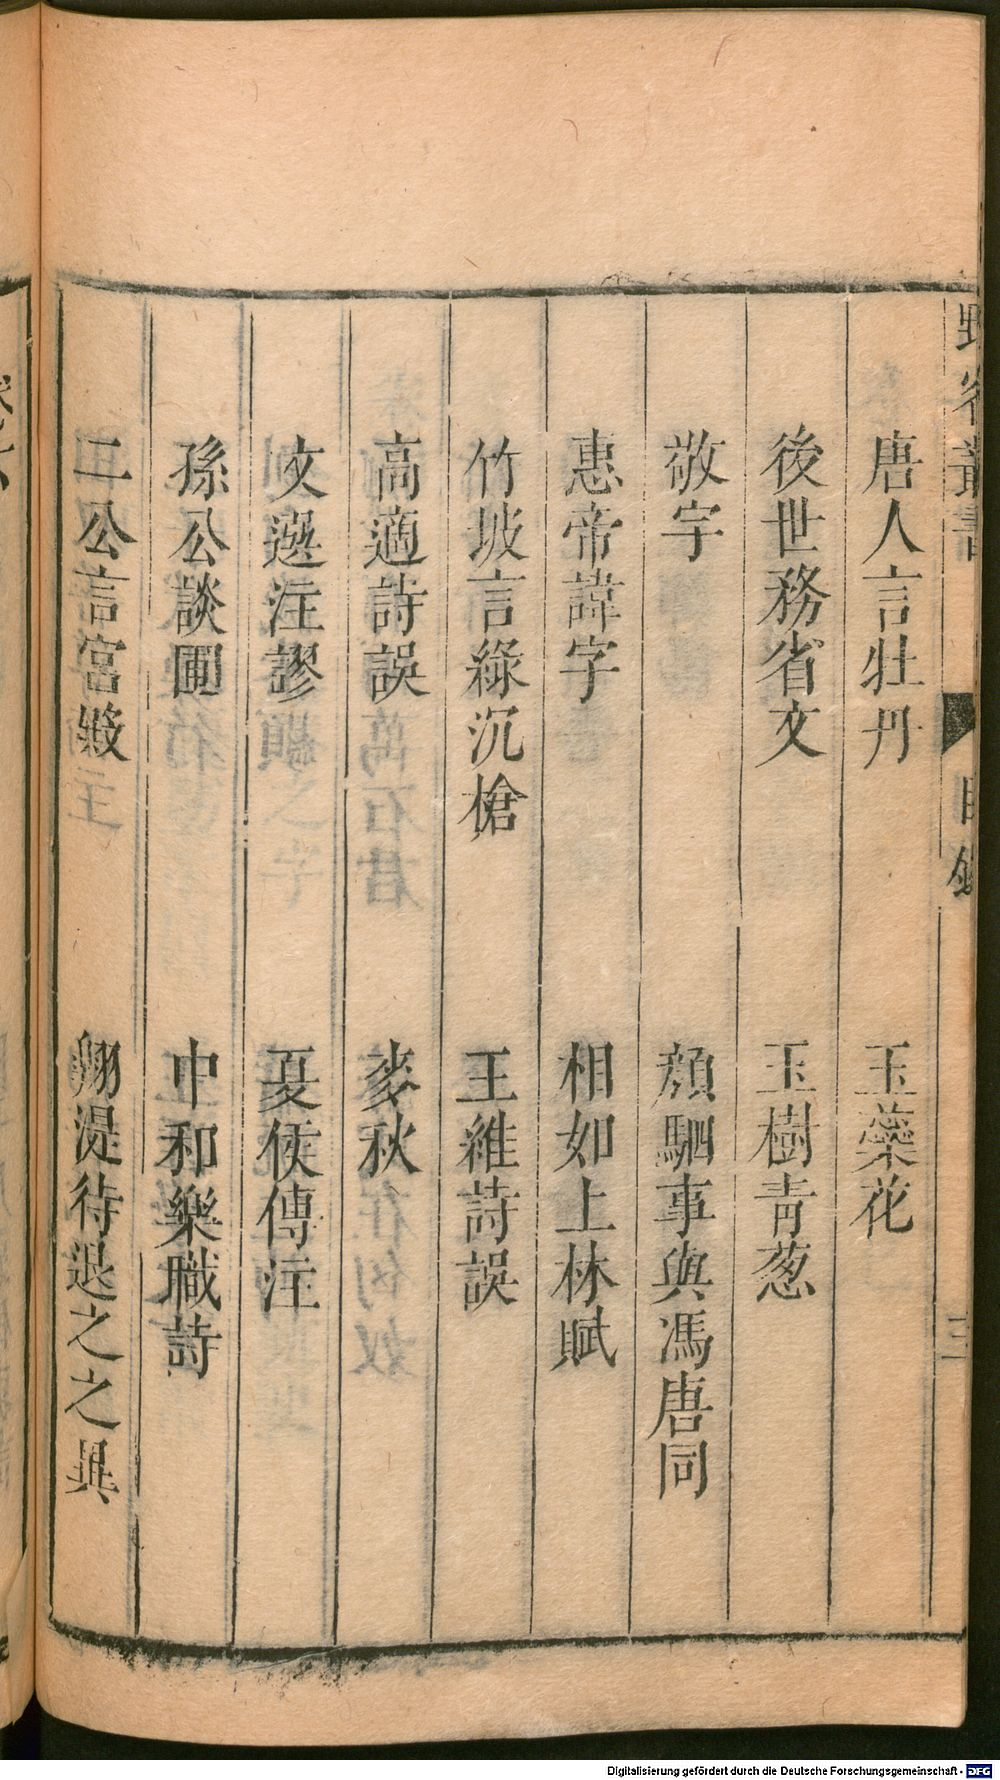 野客叢書 目錄 三
唐人言牡丹 玉蘂花
後世務省文 玉樹青葱
敬字 顏駟事與馮唐同
惠帝諱字 相如上林賦
竹坡言綠沉槍 王維詩誤
高適詩誤 麥秋
文選注謬 夏侯傳注
孫公談圃 中和樂職詩
二公言宮殿 翱湜待退之之異
Digitalisierung gefördert durch die Deutsche Forschungsgemeinschaft - DFG